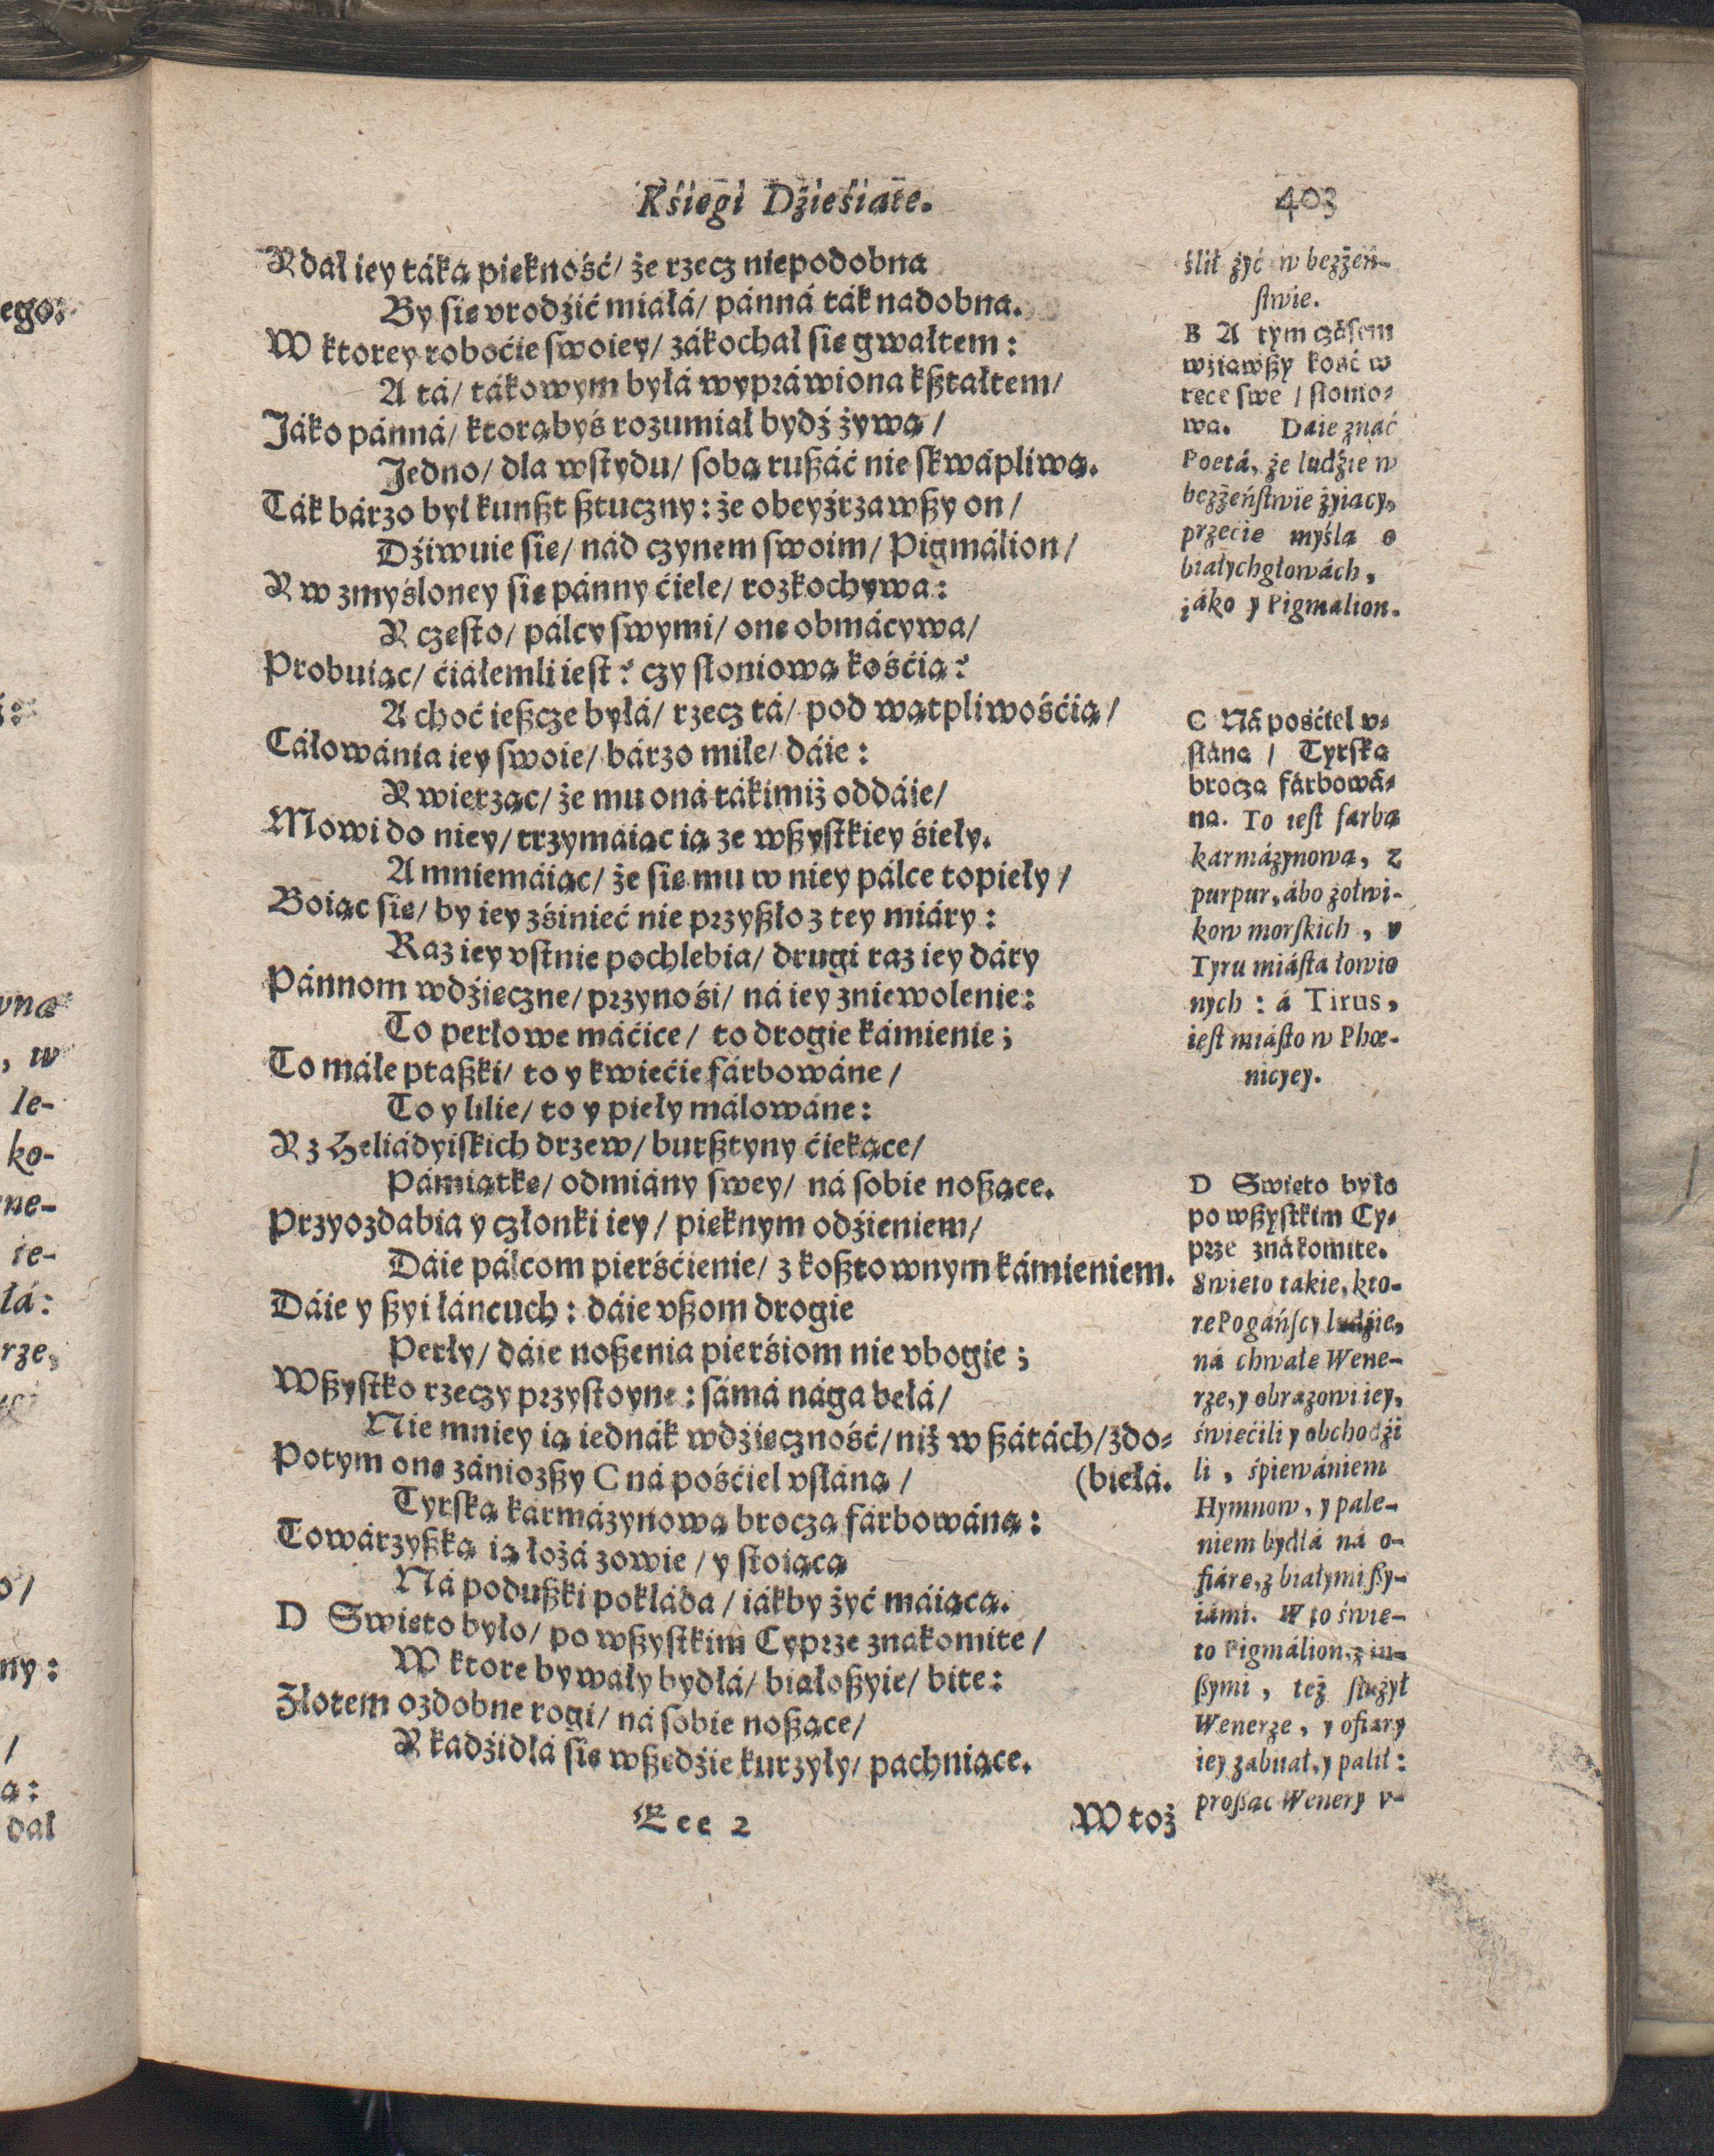 Kśięgi Dźieśiąte.
403
Y dał iey táką piękność/ że rzecz niepodobna
By się vrodźić miáłá/ pánná ták nadobna.
W ktorey roboćie swoiey/ zákochał się gwałtem:
A tá/ tákowym byłá wypráwiona kßtałtem/
Jáko pánná/ ktorąbyś rozumiał bydź żywą/
Jedno/ dla wstydu/ sobą rußáć nie skwápliwą.
Ták bárzo był kunßt ßtuczny: że obeyźrzawßy on/
Dźiwuie się/ nád czynem swoim/ Pigmálion/
Y w zmyśloney się pánny ćiele/ rozkochywa:
Y często/ pálcy swymi/ onę obmácywa/
Probuiąc/ ćiáłemli iest? czy słoniową kośćią?
A choć ießcze byłá/ rzecz tá/ pod wątpliwośćią/
Cáłowánia iey swoie/ bárzo miłe/ dáie:
Y wierząc/ że mu oná tákimiż oddáie/
Mowi do niey/ trzymáiąc ią ze wßystkiey śieły.
A mniemáiąc/ że się mu w niey pálce topieły/
Boiąc się/ by iey zśinieć nie przyßło z tey miáry:
Raz iey vstnie pochlebia/ drugi raz iey dáry
Pánnom wdźięczne/ przynośi/ ná iey zniewolenie:
To perłowe máćice/ to drogie kámienie;
To máłe ptaßki/ to y kwiećie fárbowáne/
To y lilie/ to y pieły málowáne:
Y z Heliádyiskich drzew/ burßtyny ćiekące/
Pámiątkę/ odmiány swey/ ná sobie noßące.
Przyozdabia y członki iey/ pięknym odźieniem/
Dáie pálcom pierśćienie/ z koßtownym kámieniem.
Dáie y ßyi łáncuch: dáie vßom drogie
Perły/ dáie noßenia pierśiom nie vbogie;
Wßystko rzeczy przystoyne: sámá nága belá/
Nie mniey ią iednák wdźięczność/ niż w ßátách/ zdo-
(biełá.
Potym onę zániozßy C ná pośćiel vsłáną/
Tyrską kármázynową broczą fárbowáną:
Towárzyßką ią łożá zowie/ y stoiącą
Ná podußki pokłáda/ iákby żyć máiącą.
D Swięto było/ po wßystkim Cyprze znakomite/
W ktore bywały bydłá/ białoßyie/ bite:
Złotem ozdobne rogi/ ná sobie noßące/
Y kadźidłá się wßędźie kurzyły/ pachniące.
Eee 2
W toż
ślił żyć w bezżeń-
stwie.
B A tym czásem
wźiąwßy kość w
ręce swe / słonio-
wą. Daie znáć
Poetá, że ludźie w
bezżeństwie żyiący,
przećie myślą o
białychgłowách,
iáko y Pigmalion.
C Ná pośćiel v-
słáną / Tyrską
broczą fárbowá-
ną. To iest farbą
kármázynową, z
purpur, ábo żołwi-
kow morskich, v
Tyru miástá łowio
nych: á Tirus,
iest miásto w Phœ-
nicyey.
D Swięto było
po wßystkim Cy-
prze znákomite.
Swięto takie, kto-
re Pogáńscy ludźie,
ná chwałę Wene-
rze, y obrazowi iey,
święćili y obchodźi
li, śpiewániem
Hymnow, y pale-
niem bydłá ná o-
fiárę, z białymi ßy-
iámi. W to świę-
to Pigmálion, z in-
ßymi, też służył
Wenerze, y ofiary
iey zabiiał, y palił:
proßąc Wenery v-
ego:
, w
le-
ko-
ne-
ie-
łá:
rze,
ny:
dał